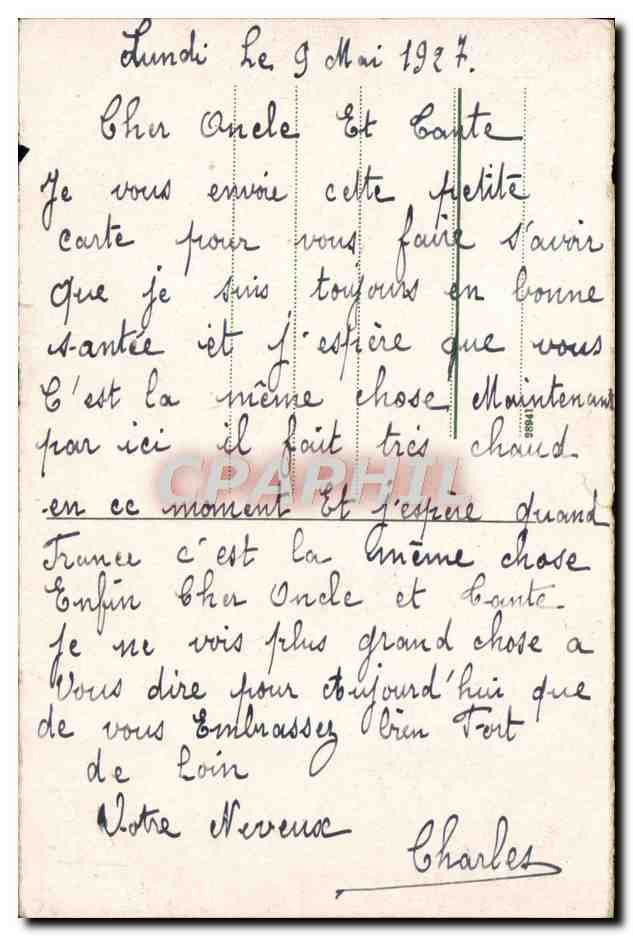 Lundi Le 9 Mai 1927.
Cher Oncle Et Tante
Je vous envoie cette petite
carte pour vous faire s'avoir
que je suis toujours en bonne
santée et j'espère que vous
C'est la même chose Maintenant
par ici il fait trés chaud
en ce moment Et j'espère quand
France c'est la même chose
Enfin Cher Oncle et Tante
je ne vois plus grand chose a
Vous dire pour Aujourd'hui que
de vous Embrassez bien Fort
de Loin
Votre Neveux
Charles
98941
CPAPHIL